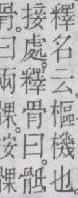 釋名云。樞機也
接處。釋骨曰。骶
骨曰兩髁。按髁